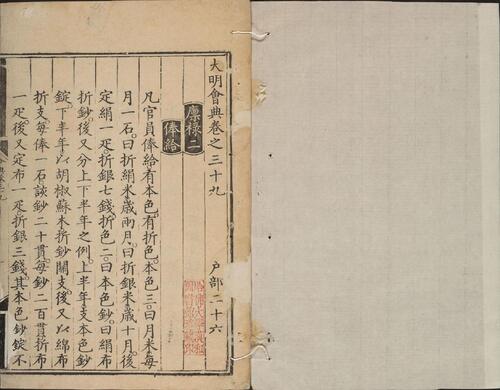 大明會典卷之三十九　戶部二十六
廩祿二
俸給
凡官員俸給有本色有折色本色三曰月米每
月一石曰折絹米歲兩月曰折銀米歲十月後
定絹一疋折銀七錢折色二曰本色鈔曰絹布
折鈔後又分上下半年之例上半年支本色鈔
錠下半年以胡椒蘇木折鈔關支後又以綿布
折支每俸一石該鈔二十貫每鈔二百貫折布
一疋後又定布一疋折銀三錢其本色鈔錠不